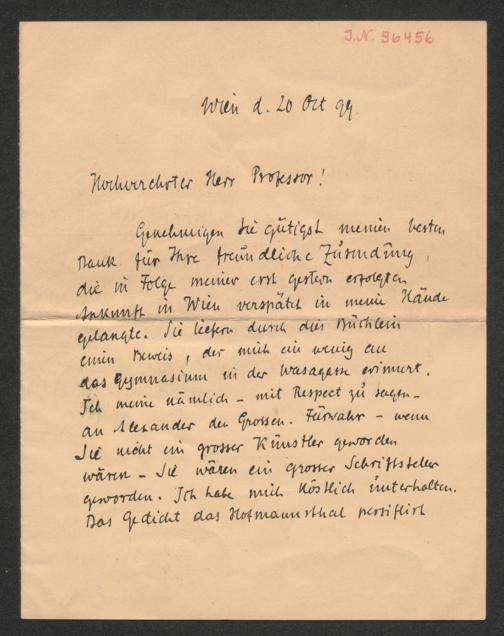 J.N. 96456
Wien d. 20 Oct 99.
Hochverehrter Herr Professor!
Genehmigen Sie gütigst meinen besten
Dank für Ihre freundliche Zusendung,
die in Folge meiner erst gestern erfolgten
Ankunft in Wien verspätet in meine Hände
gelangte. Sie liefern durch dies Büchlein
einen Beweis, der mich ein wenig an
das Gymnasium in der Wasagasse erinnert.
Ich meine nämlich – mit Respect zu sagen –
an Alexander den Grossen. Fürwahr – wenn
Sie nicht ein grosser Künstler geworden
wären – Sie wären ein grosser Schriftsteller
geworden. Ich habe mich köstlich unterhalten.
Das Gedicht das Hofmannsthal persiflirt